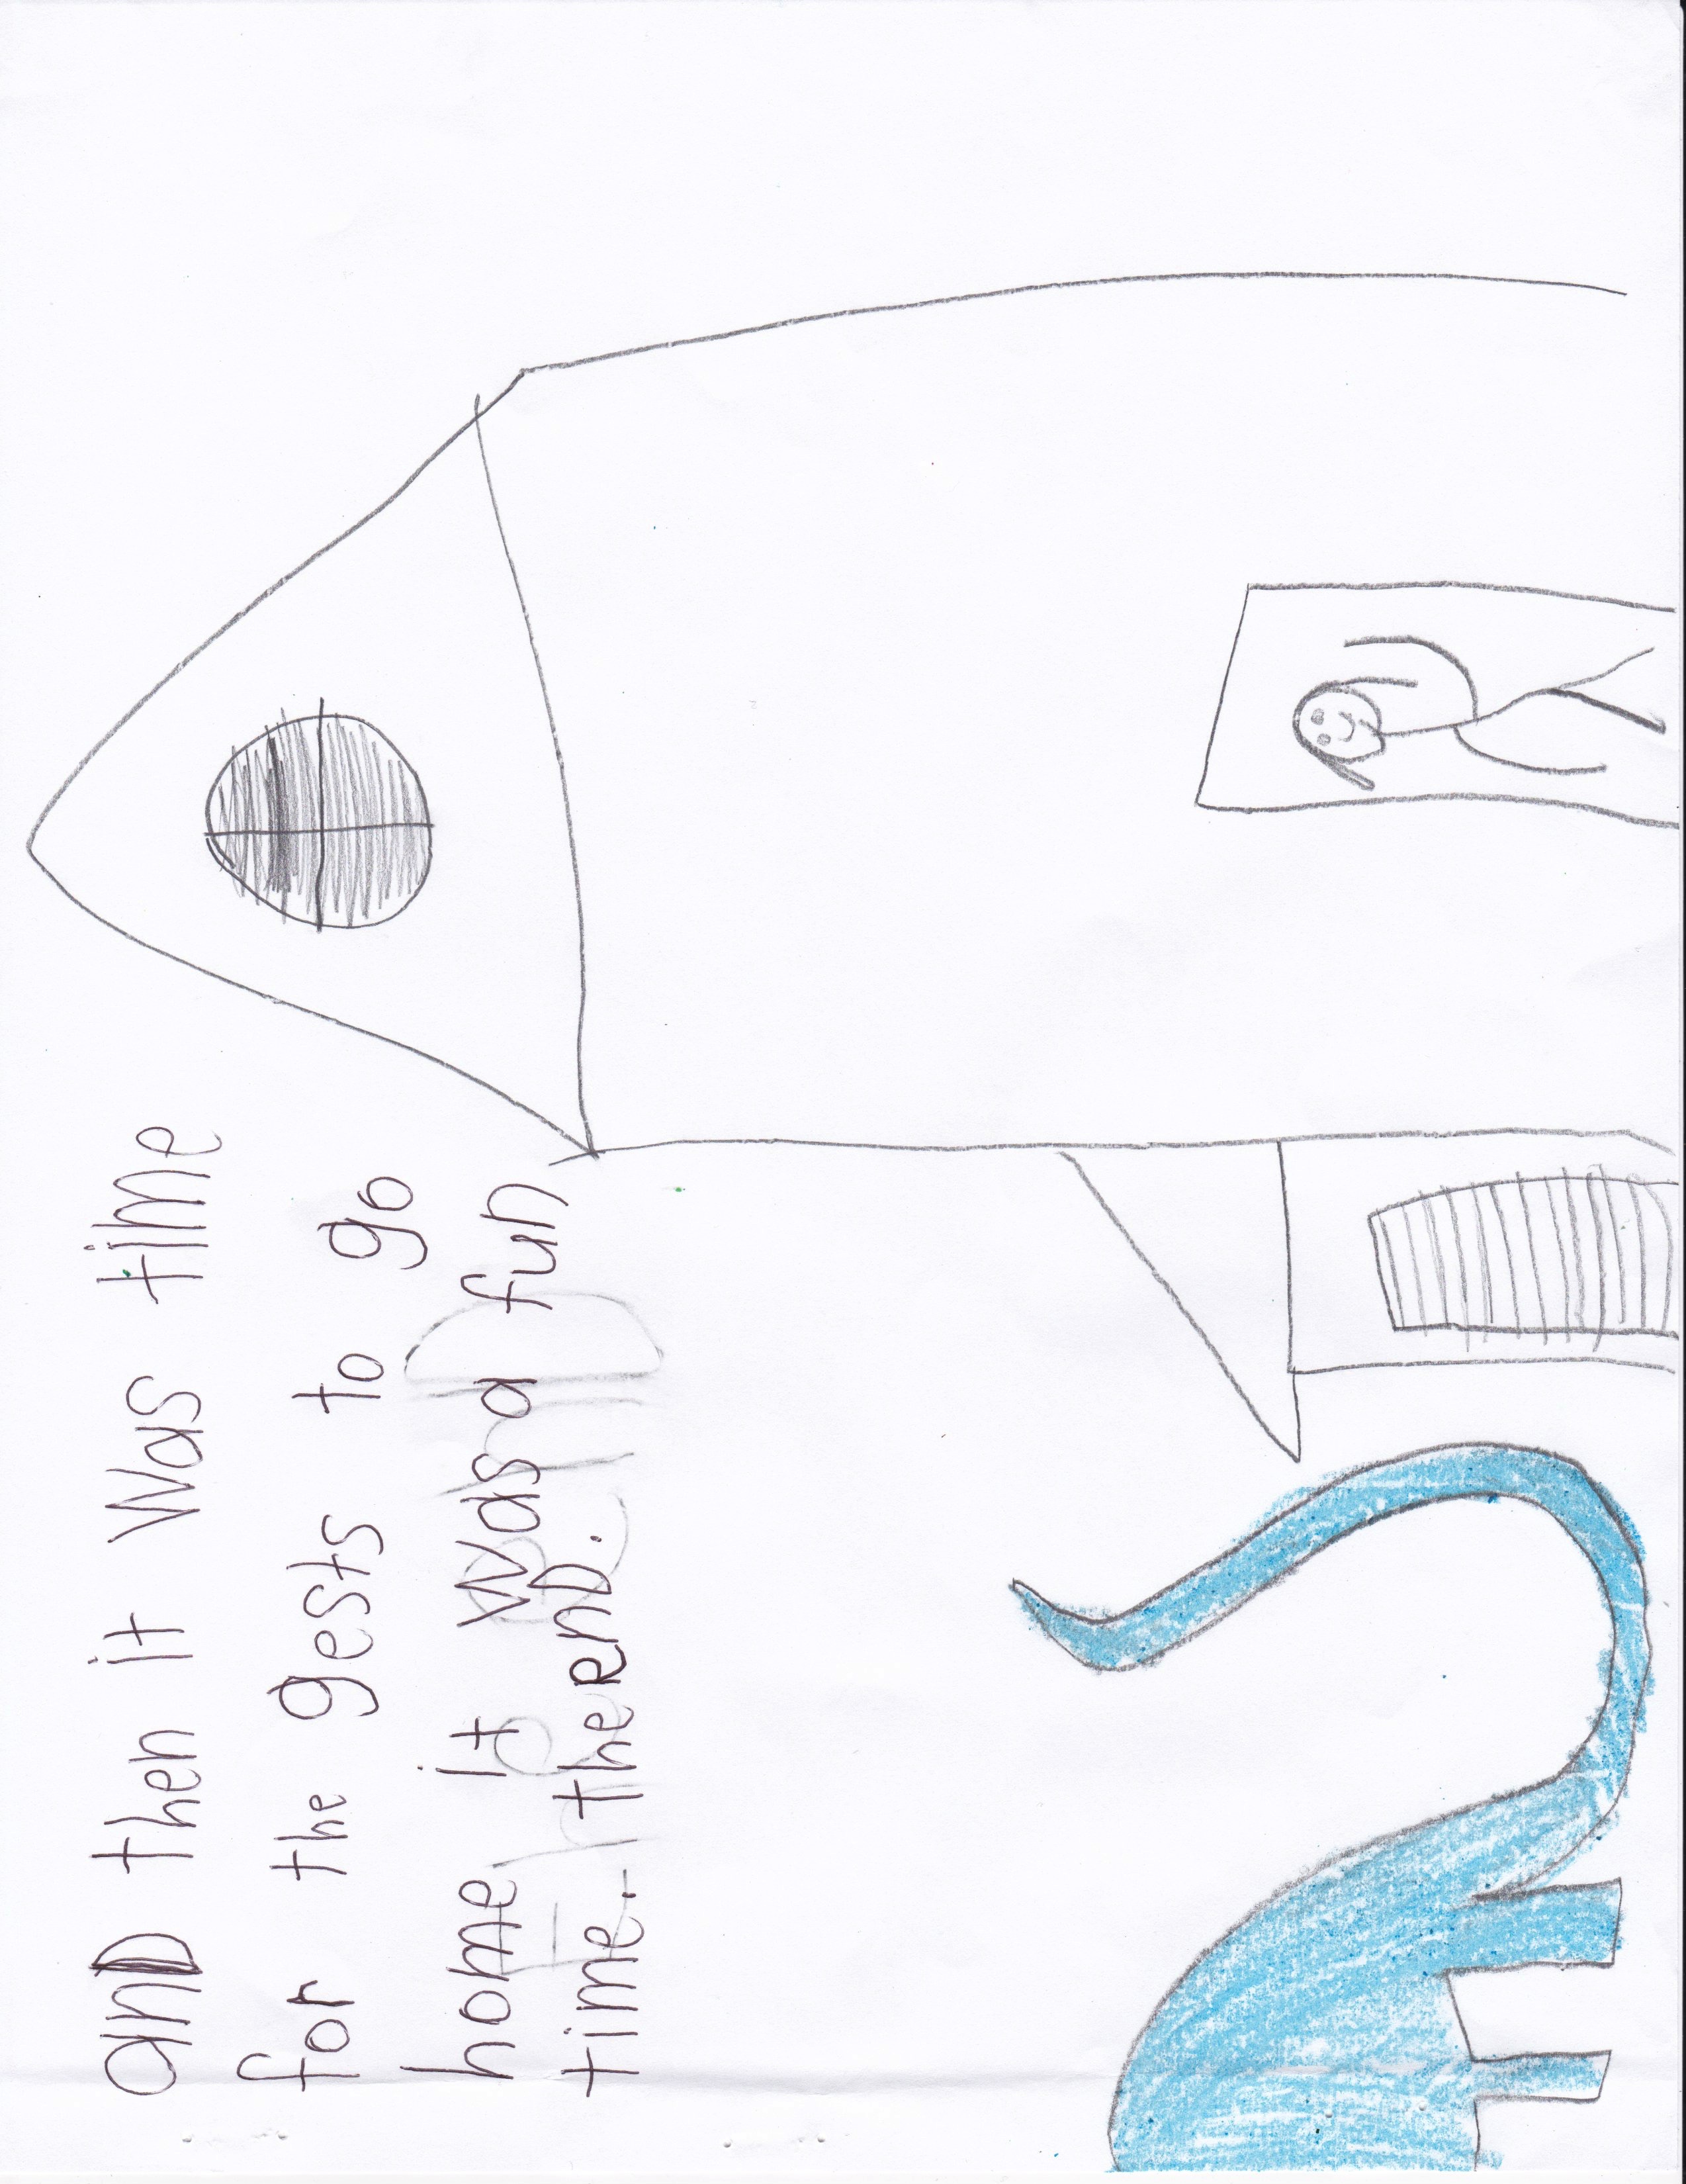 anD then it was time
for the gests to go
home it was a fun
time. the enD.
the enD